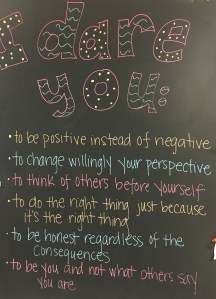 I dare
you:
• to be positive instead of negative
• to change willingly your perspective
• to think of others before yourself
• to do the right thing just because
it's the right thing
• to be honest regardless of the
consequences
• to be you and not what others say
you are